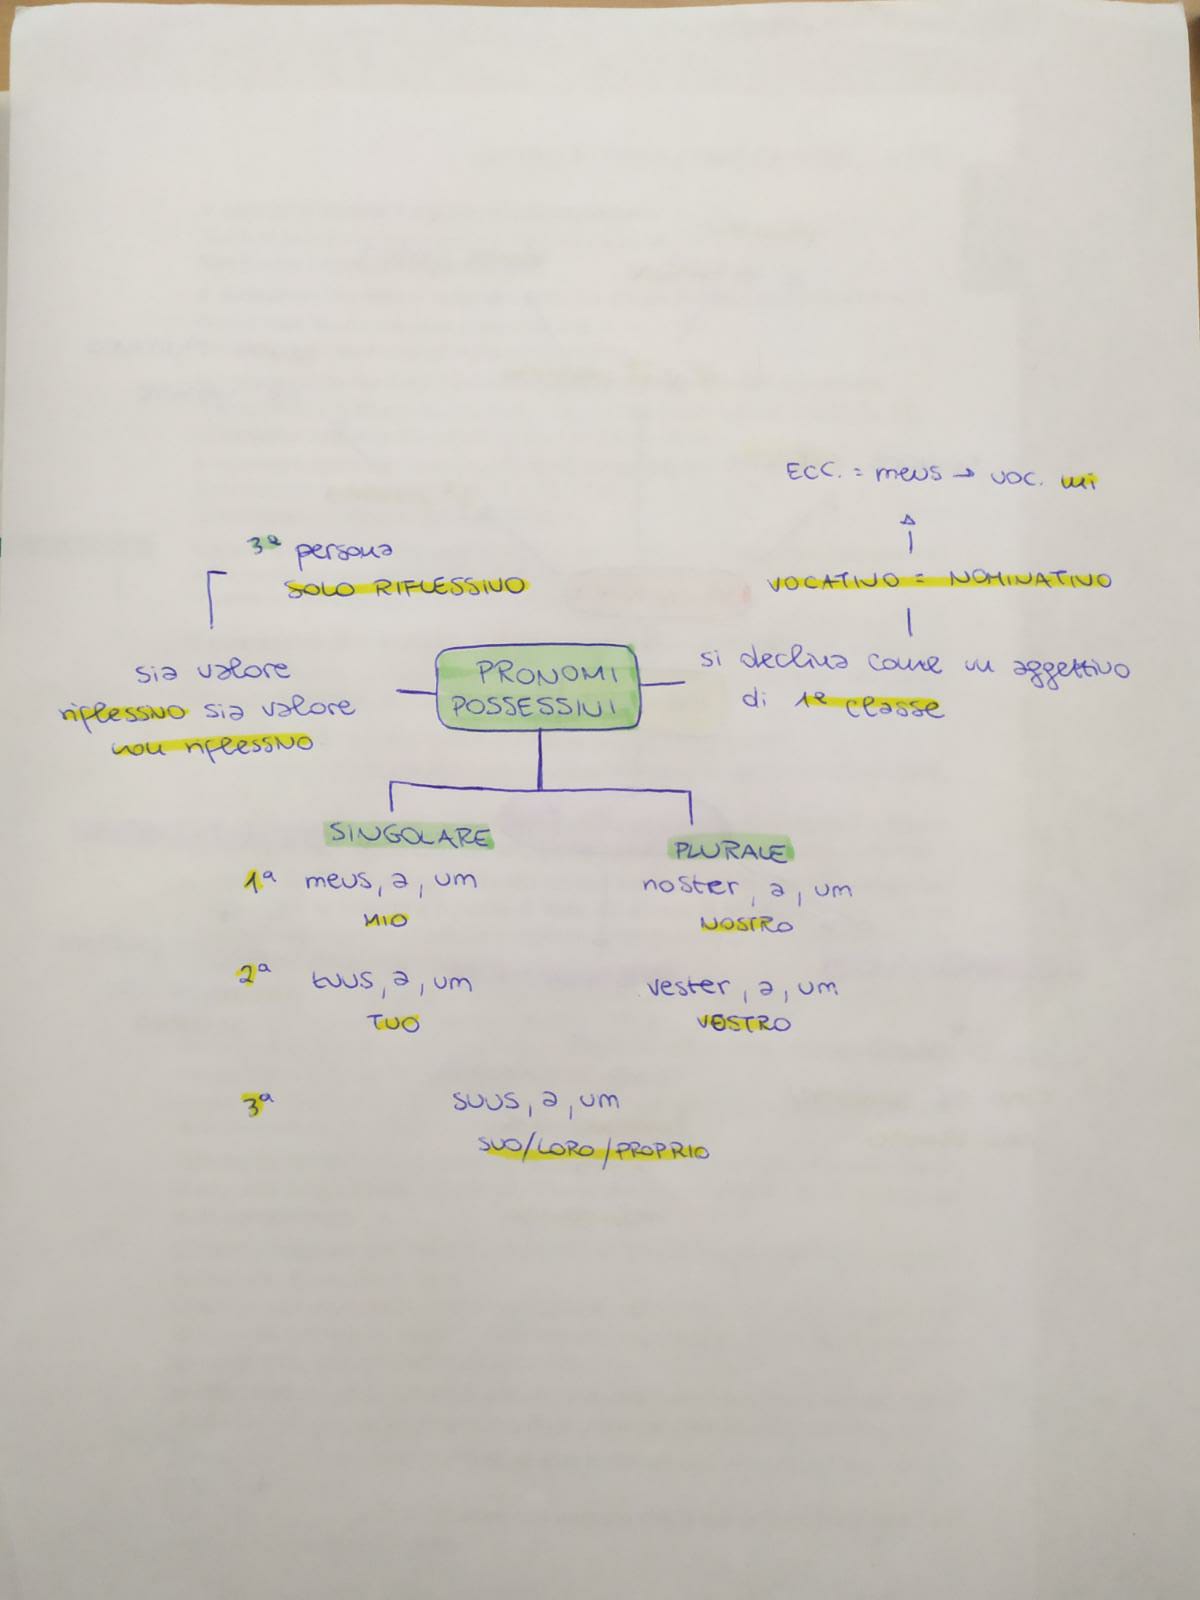 ECC. = meus → VOC. mi
3ª persona
SOLO RIFLESSIVO
VOCATIVO = NOMINATIVO
sia valore
riflessivo sia valore
non riflessivo
PRONOMI
POSSESSIVI
si declina come un aggettivo
di 1ª classe
SINGOLARE
PLURALE
1ª meus, a, um
noster, a, um
MIO
NOSTRO
2ª tuus, a, um
vester, a, um
TUO
VOSTRO
3ª suus, a, um
SUO/LORO/PROPRIO